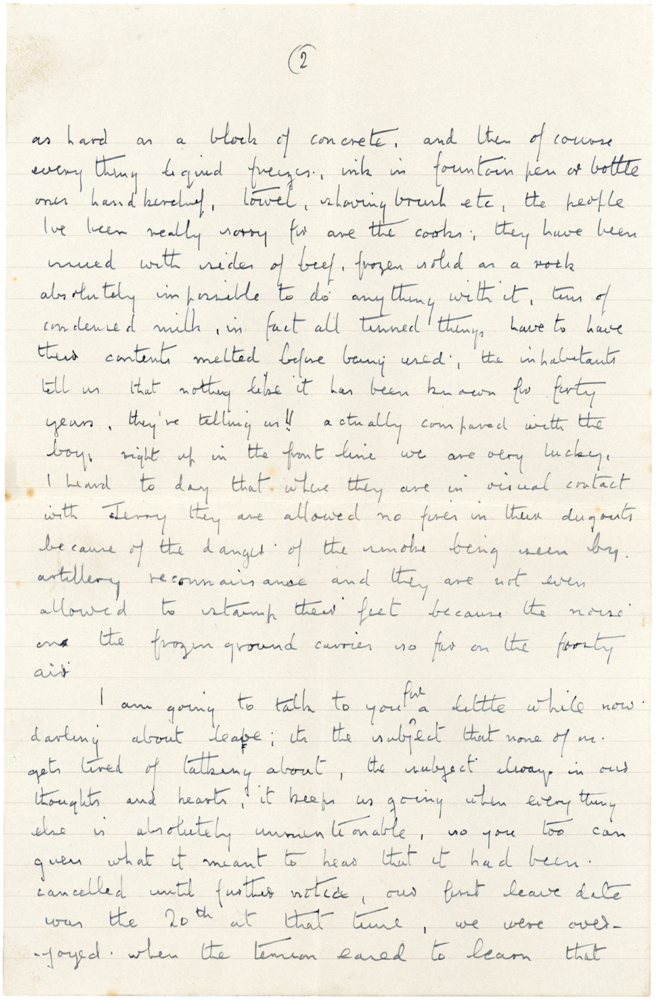 2
as hard as a block of concrete, and then of course
every thing liquid freezes, ink in fountain pen or bottle
ones handkerchief, towel, shaving brush etc, the people
I've been really sorry for are the cooks; they have been
issued with sides of beef, frozen solid as a rock
absolutely impossible to do anything with it, tins of
condensed milk, in fact all tinned things have to have
their contents melted before being used; the inhabitants
tell us that nothing like it has been known for forty
years, they're telling us!! actually compared with the
boys right up in the front line we are very lucky.
I heard to day that where they are in visual contact
with Jerry they are allowed no fires in their dugouts
because of the danger of the smoke being seen by
artillery reconnaissance and they are not even
allowed to stamp their feet because the noise
on the frozen ground carries so far on the frosty
air
I am going to talk to you for a little while now
darling about leave; its the subject that none of us
gets tired of talking about, the subject always in our
thoughts and hearts, it keeps us going when everything
else is absolutely unmentionable, so you too can
guess what it meant to hear that it had been
cancelled until further notice, our first leave date
was the 20th at that time, we were over-
-joyed when the tension eased to learn that